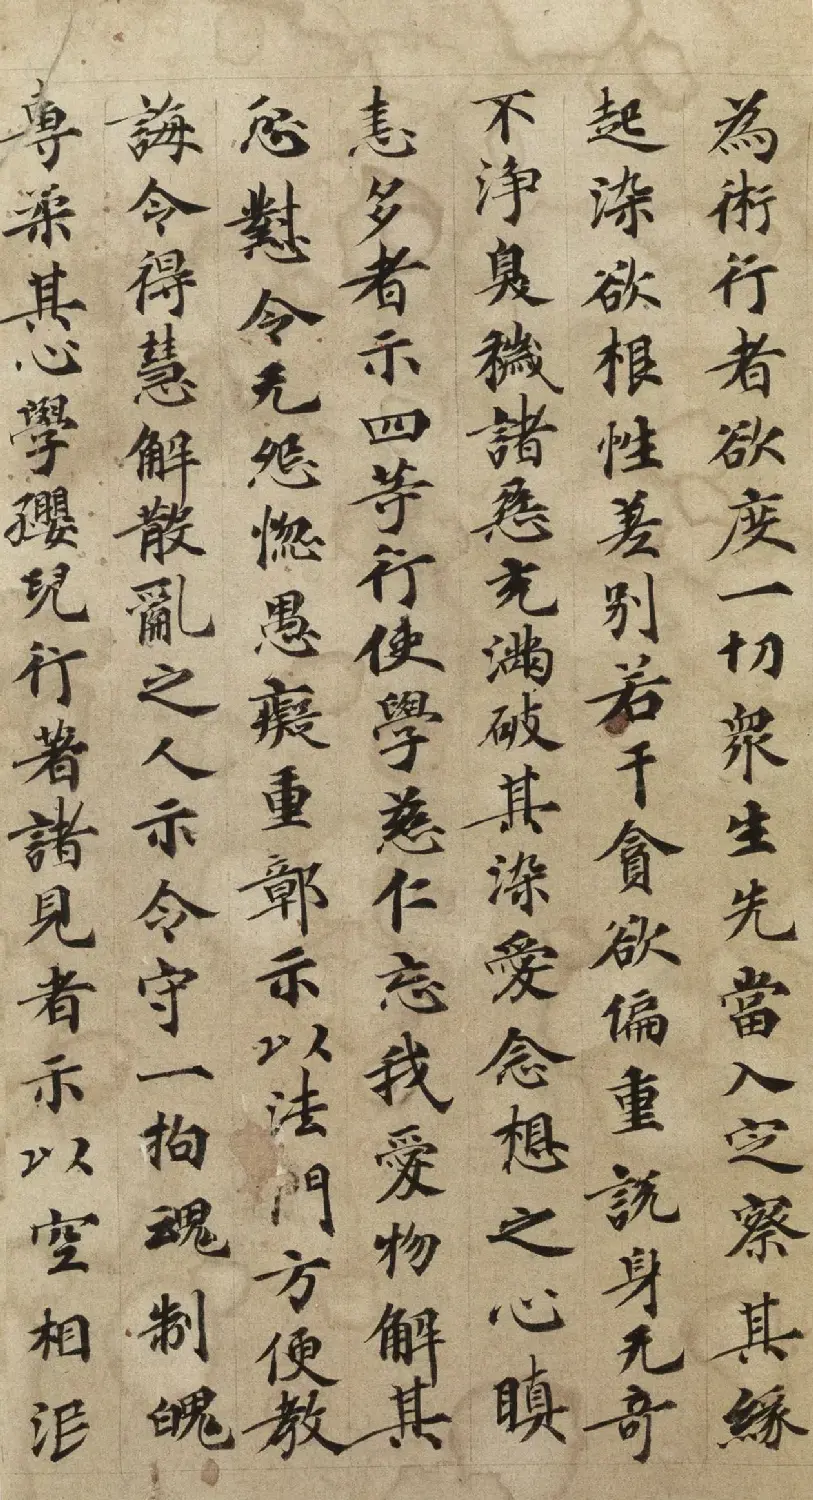 為術行者欲度一切衆生先當入定察其緣
起染欲根性差別若干貪欲偏重說身无奇
不淨臭穢諸惡充滿破其染愛念想之心瞋
恚多者示四等行使學慈仁忘我愛物解其
忿懟令无怨惚愚癡重鄣示以法門方便教
誨令得慧解散亂之人示令守一拘魂制魄
專柔其心學孾兒行著諸見者示以空相泯